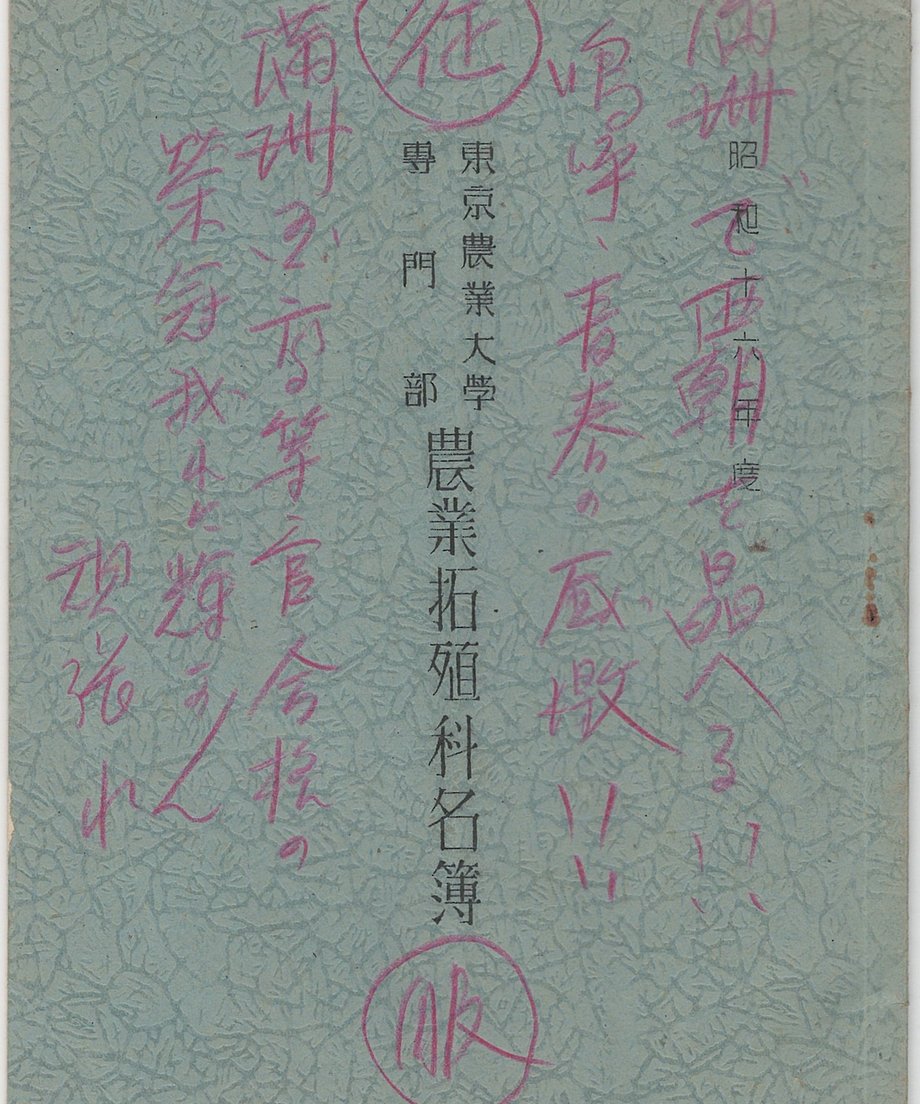 昭和十六年度
満洲で を へる!!
嗚呼、青春の感激!!
征
東京農業大學
專門部
農業拓殖科名簿
服
満洲国高等官合格の
栄冠我れに輝かん
頑張れ